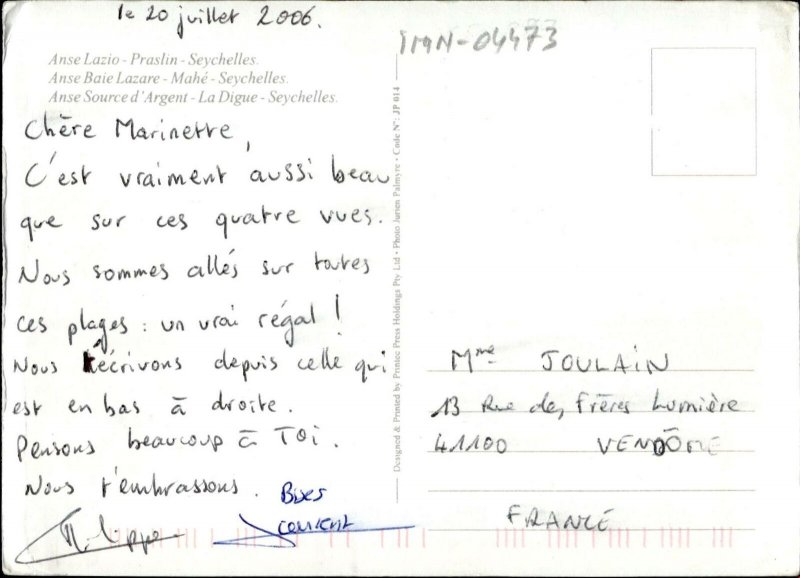 le 20 juillet 2006.
IMN-04473
Anse Lazio - Praslin - Seychelles.
Anse Baie Lazare - Mahé - Seychelles.
Anse Source d'Argent - La Digue - Seychelles.
Chère Marinette,
C'est vraiment aussi beau
que sur ces quatre vues.
Nous sommes allés sur toutes
ces plages : un vrai régal !
Nous t'écrivons depuis celle qui
est en bas à droite.
Pensons beaucoup à Toi.
Nous t'embrassons.
Bises
Designed & Printed by Printec Press Holdings Pty Ltd • Photo Jurien Palmyre • Code N°: JP 014
Mme JOULAIN
13 Rue des Frères Lumière
41100 VENDÔME
FRANCE